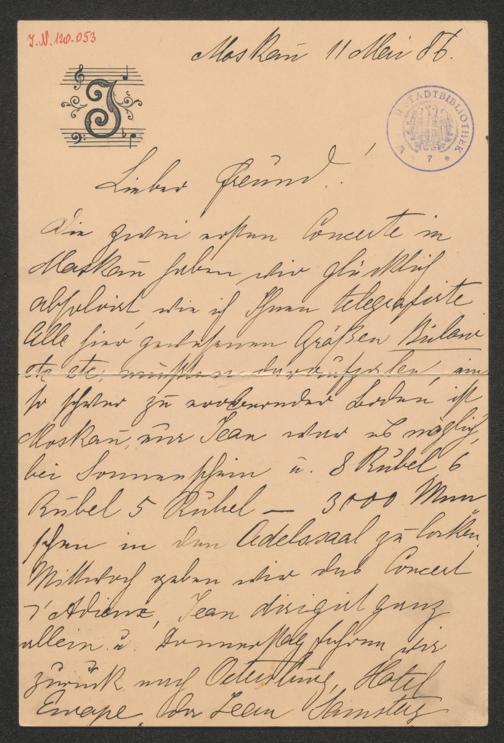 J.N. 120.053
Moskau 11 Mai 86.
J
STADTBIBLIOTHEK
7
Lieber Freund!
Die zwei ersten Concerte in
Moskau haben wir glücklich
absolvirt, wie ich Ihnen telegrafirte
Alle hier gewesenen Größen Bülow
etc etc mußten daraufzahlen, ein
so schwer zu erobernder Boden ist
Moskau, nur Jean war es möglich,
bei Sonnenschein u. 8 Rubel 6
Rubel 5 Rubel — 3000 Men
schen in den Adelssaal zu locken,
Mittwoch geben wir das Concert
d'Adieux, Jean dirigirt ganz
allein u. Donnerstag fahren wir
zurück nach Petersburg, Hotel
Europe, da Jean Samstag